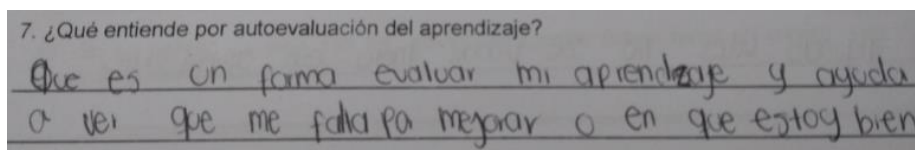 7. ¿Qué entiende por autoevaluación del aprendizaje?
Que es un forma evaluar mi aprendizaje y ayuda
a ver que me falla pa mejorar o en que estoy bien